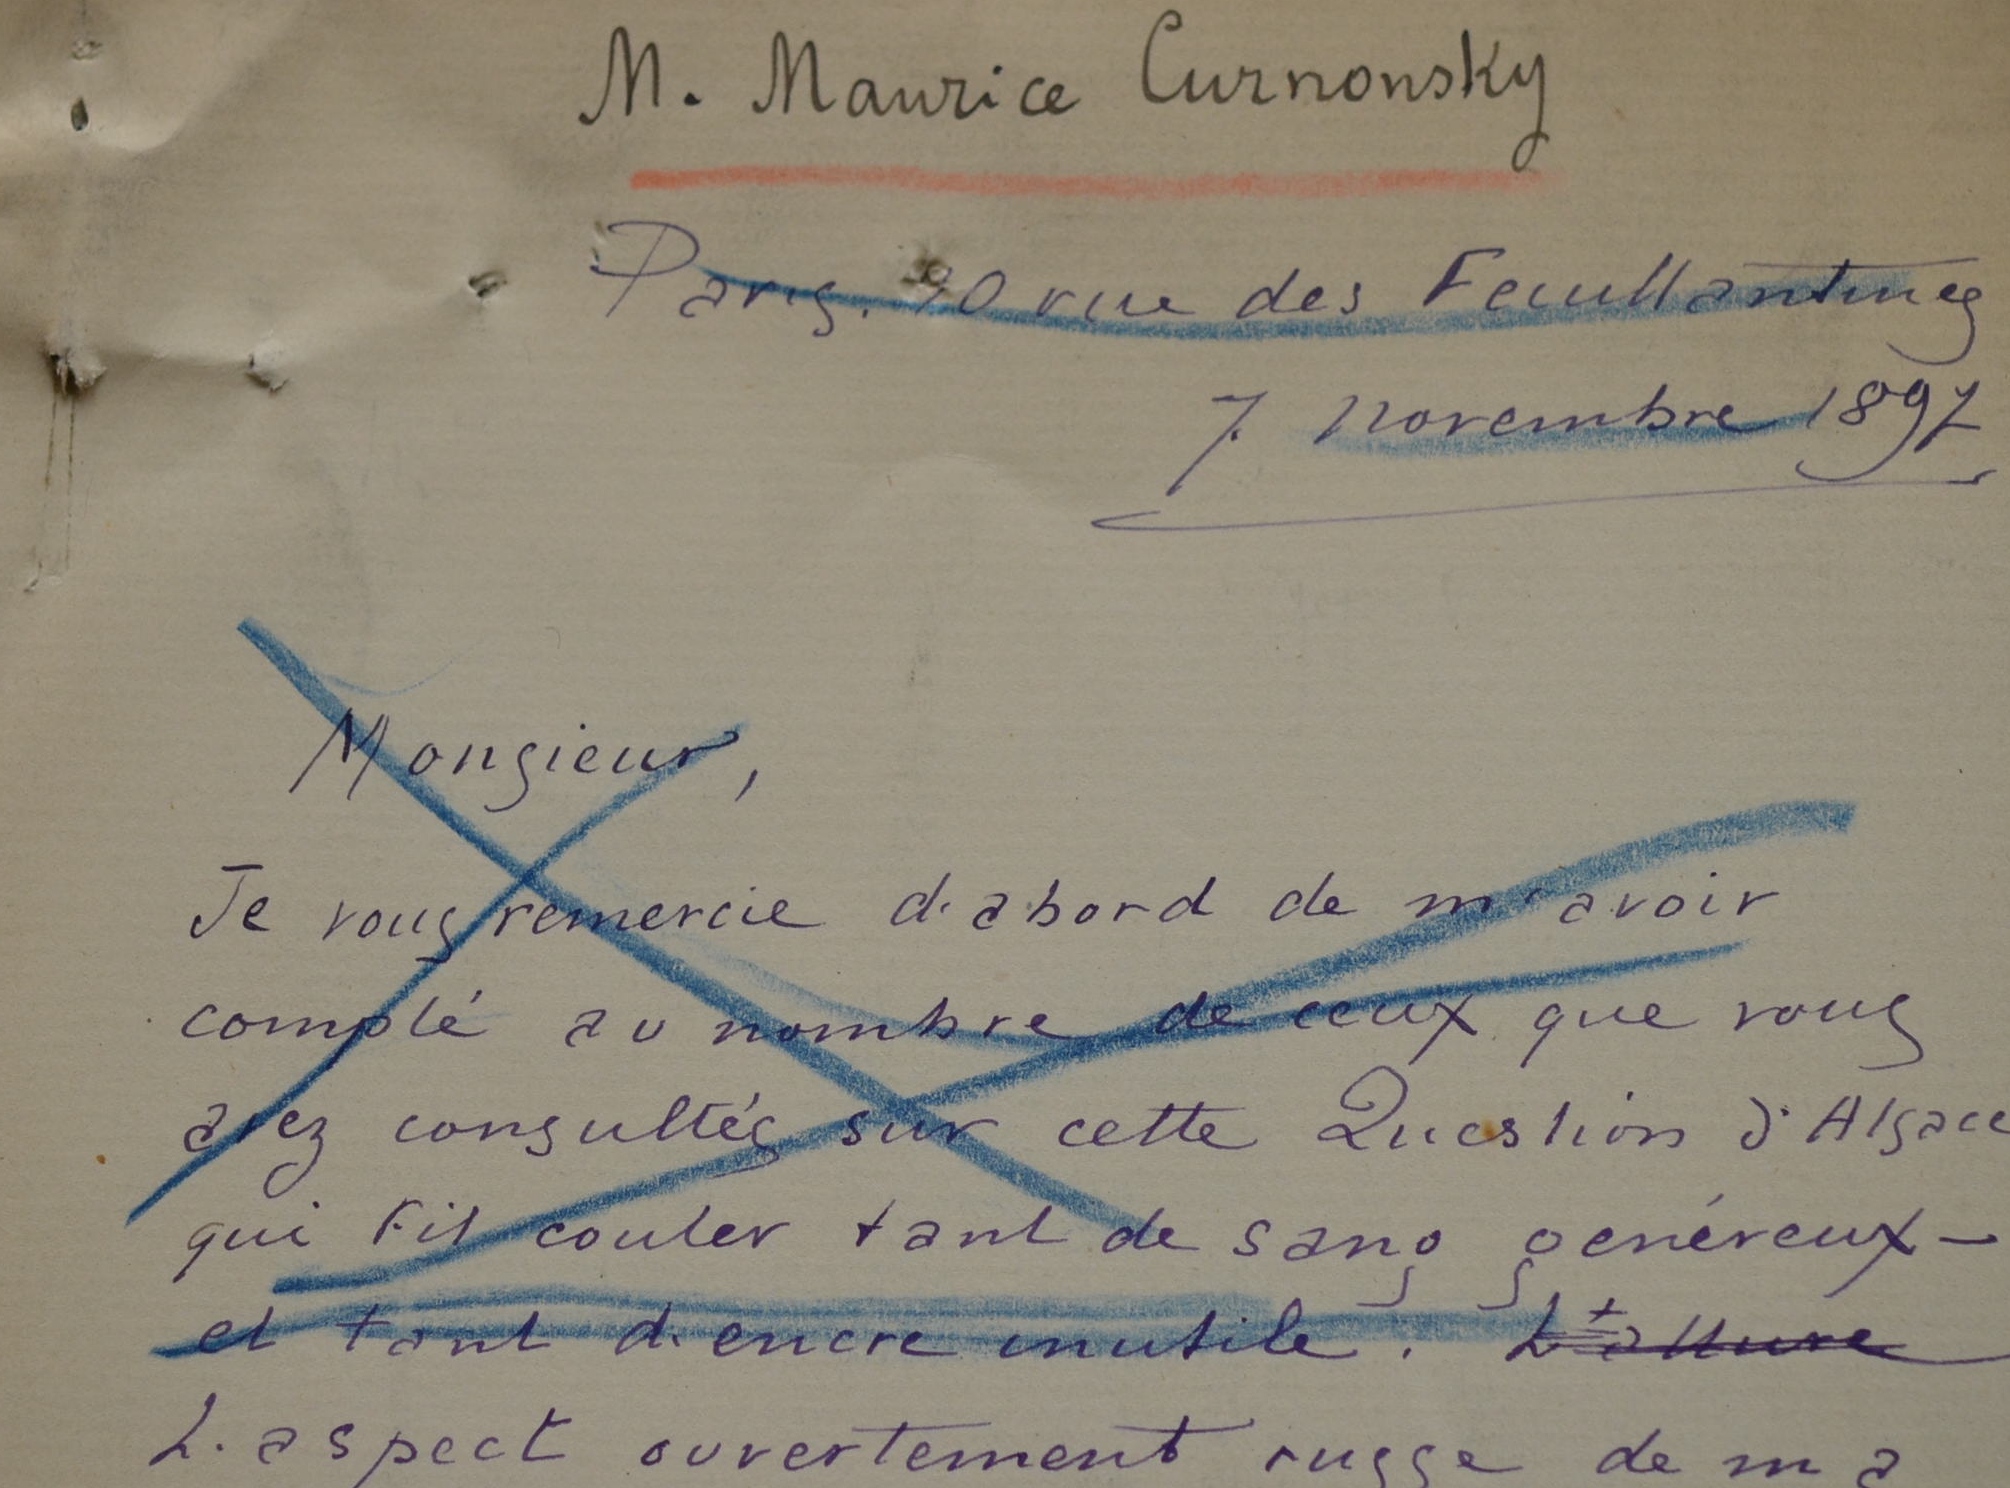 M. Maurice Curnonsky
Paris. 90 rue des Feuillantines
7. novembre 1897
Monsieur,
Je vous remercie d'abord de m'avoir
compté au nombre de ceux que vous
avez consultés sur cette Question d'Alsace
qui fit couler tant de sang généreux -
et tant d'encre inutile. L'allure
L'aspect ouvertement russe de ma